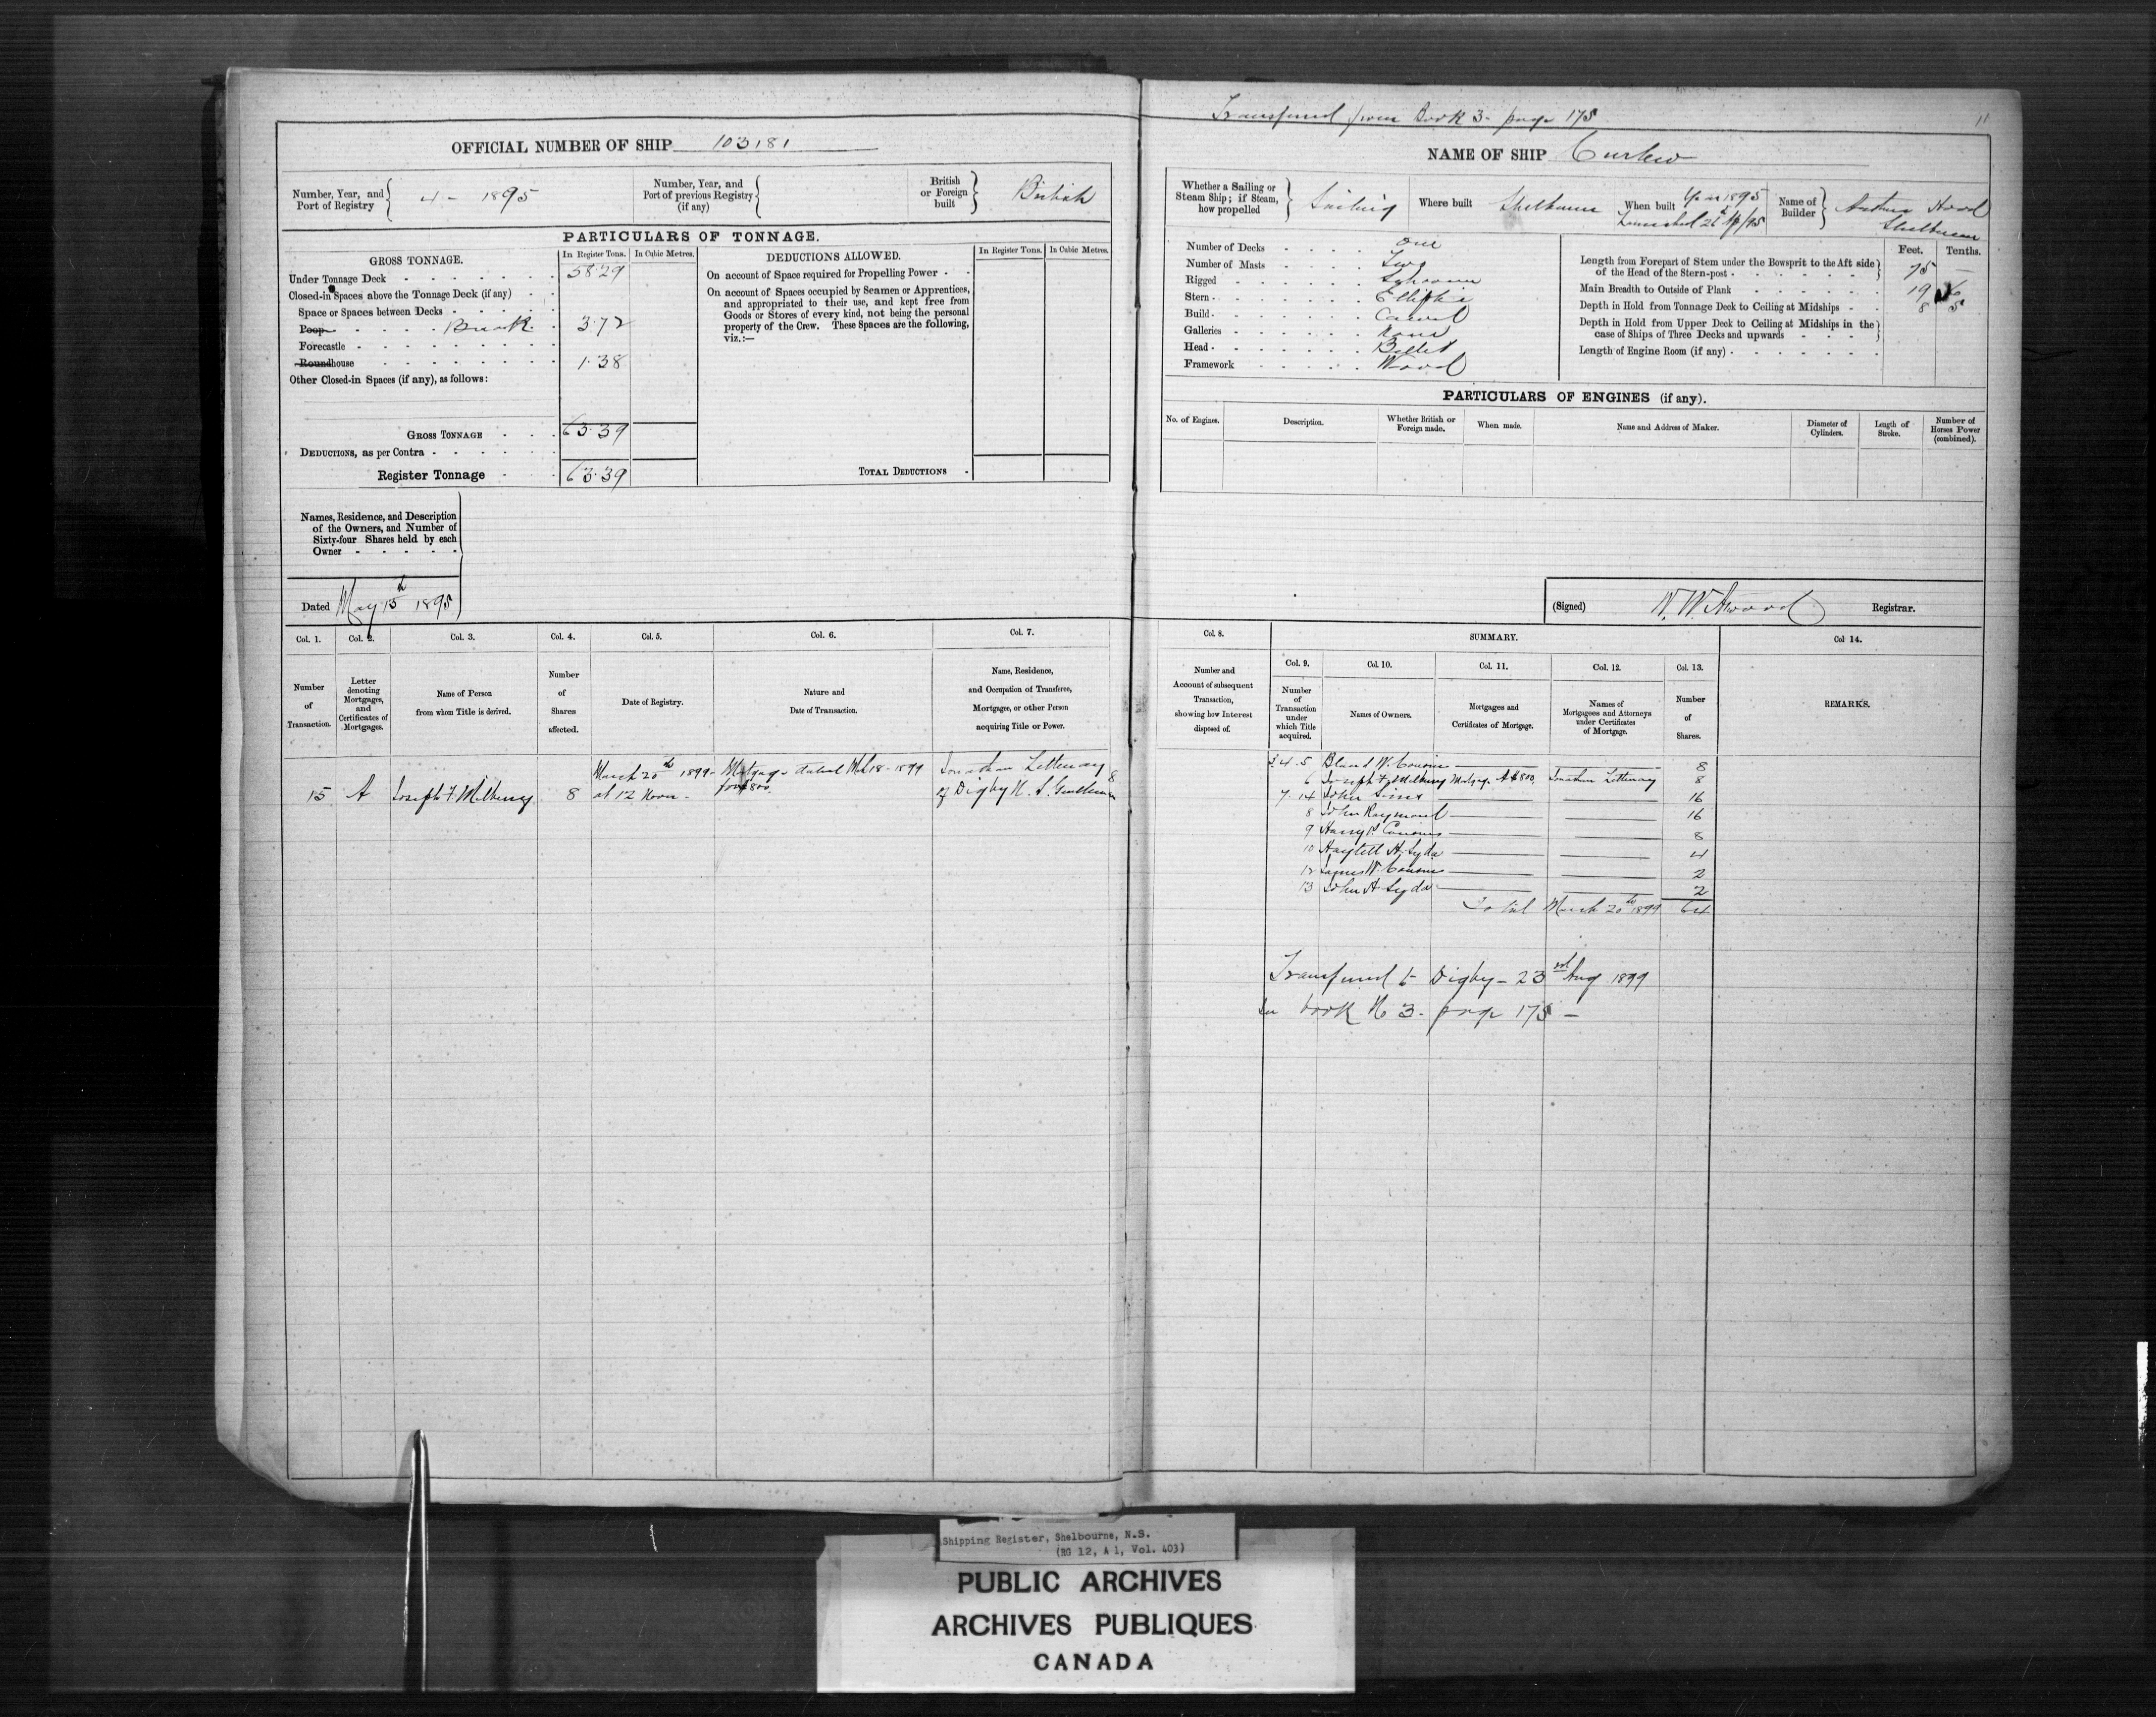 Transferred from Book 3 - page 175
11
OFFICIAL NUMBER OF SHIP 103181
NAME OF SHIP Curlew
Number, Year, and Port of Registry 4 - 1895
Number, Year, and Port of previous Registry (if any)
British or Foreign built British
Whether a Sailing or Steam Ship; if Steam, how propelled Sailing
Where built Shelburne
When built Year 1895 Launched 26 Ap/95
Name of Builder Hood Shelburne
PARTICULARS OF TONNAGE.
GROSS TONNAGE.
In Register Tons.
In Cubic Metres.
Under Tonnage Deck 58.29
Closed-in Spaces above the Tonnage Deck (if any)
Space or Spaces between Decks
Poop Break 3.72
Forecastle
Roundhouse 1.38
Other Closed-in Spaces (if any), as follows:
GROSS TONNAGE 63.39
DEDUCTIONS, as per Contra
Register Tonnage 63.39
DEDUCTIONS ALLOWED.
In Register Tons.
In Cubic Metres.
On account of Space required for Propelling Power
On account of Spaces occupied by Seamen or Apprentices,
and appropriated to their use, and kept free from
Goods or Stores of every kind, not being the personal
property of the Crew. These Spaces are the following,
viz.:—
TOTAL DEDUCTIONS
Number of Decks One
Number of Masts Two
Rigged Schooner
Stern Elliptic
Build Carvel
Galleries None
Head Billet
Framework Wood
Feet. Tenths.
Length from Forepart of Stem under the Bowsprit to the Aft side of the Head of the Stern-post 75 —
Main Breadth to Outside of Plank 19
Depth in Hold from Tonnage Deck to Ceiling at Midships 8 5
Depth in Hold from Upper Deck to Ceiling at Midships in the case of Ships of Three Decks and upwards
Length of Engine Room (if any)
PARTICULARS OF ENGINES (if any).
No. of Engines.
Description.
Whether British or Foreign made.
When made.
Name and Address of Maker.
Diameter of Cylinders.
Length of Stroke.
Number of Horses Power (combined).
Names, Residence, and Description
of the Owners, and Number of
Sixty-four Shares held by each
Owner
Dated May 15th 1895
(Signed) N. W. Atwood Registrar.
Col. 1. Col. 2. Col. 3. Col. 4. Col. 5. Col. 6. Col. 7.
Number of Transaction.
Letter denoting Mortgages, and Certificates of Mortgages.
Name of Person from whom Title is derived.
Number of Shares affected.
Date of Registry.
Nature and Date of Transaction.
Name, Residence, and Occupation of Transferee, Mortgagee, or other Person acquiring Title or Power.
15 A Joseph F Milberry 8
March 20th 1899 at 12 Noon
Mortgage dated Mch 18 - 1899 for $800.
Jonathan Letteney of Digby N. S. Gentleman
8
Col. 8.
SUMMARY.
Col. 9. Col. 10. Col. 11. Col. 12. Col. 13.
Col 14.
Number and Account of subsequent Transaction, showing how Interest disposed of.
Number of Transaction under which Title acquired.
Names of Owners.
Mortgages and Certificates of Mortgage.
Names of Mortgagees and Attorneys under Certificates of Mortgage.
Number of Shares.
REMARKS.
3.4.5 Bland W. Cousins 8
6 Joseph F Milberry Mortgage A $800 Jonathan Letteney 8
7-14 John Sims 16
8 John Raymond 16
9 Cousins 8
10 H. Syda 4
12 James W. Cousins 2
13 John H. Syda 2
Total March 20th 1899 64
Transferred to Digby - 23rd Aug 1899
See book No 3 - page 175 -
Shipping Register, Shelbourne, N.S.
(RG 12, A 1, Vol. 403)
PUBLIC ARCHIVES
ARCHIVES PUBLIQUES
CANADA